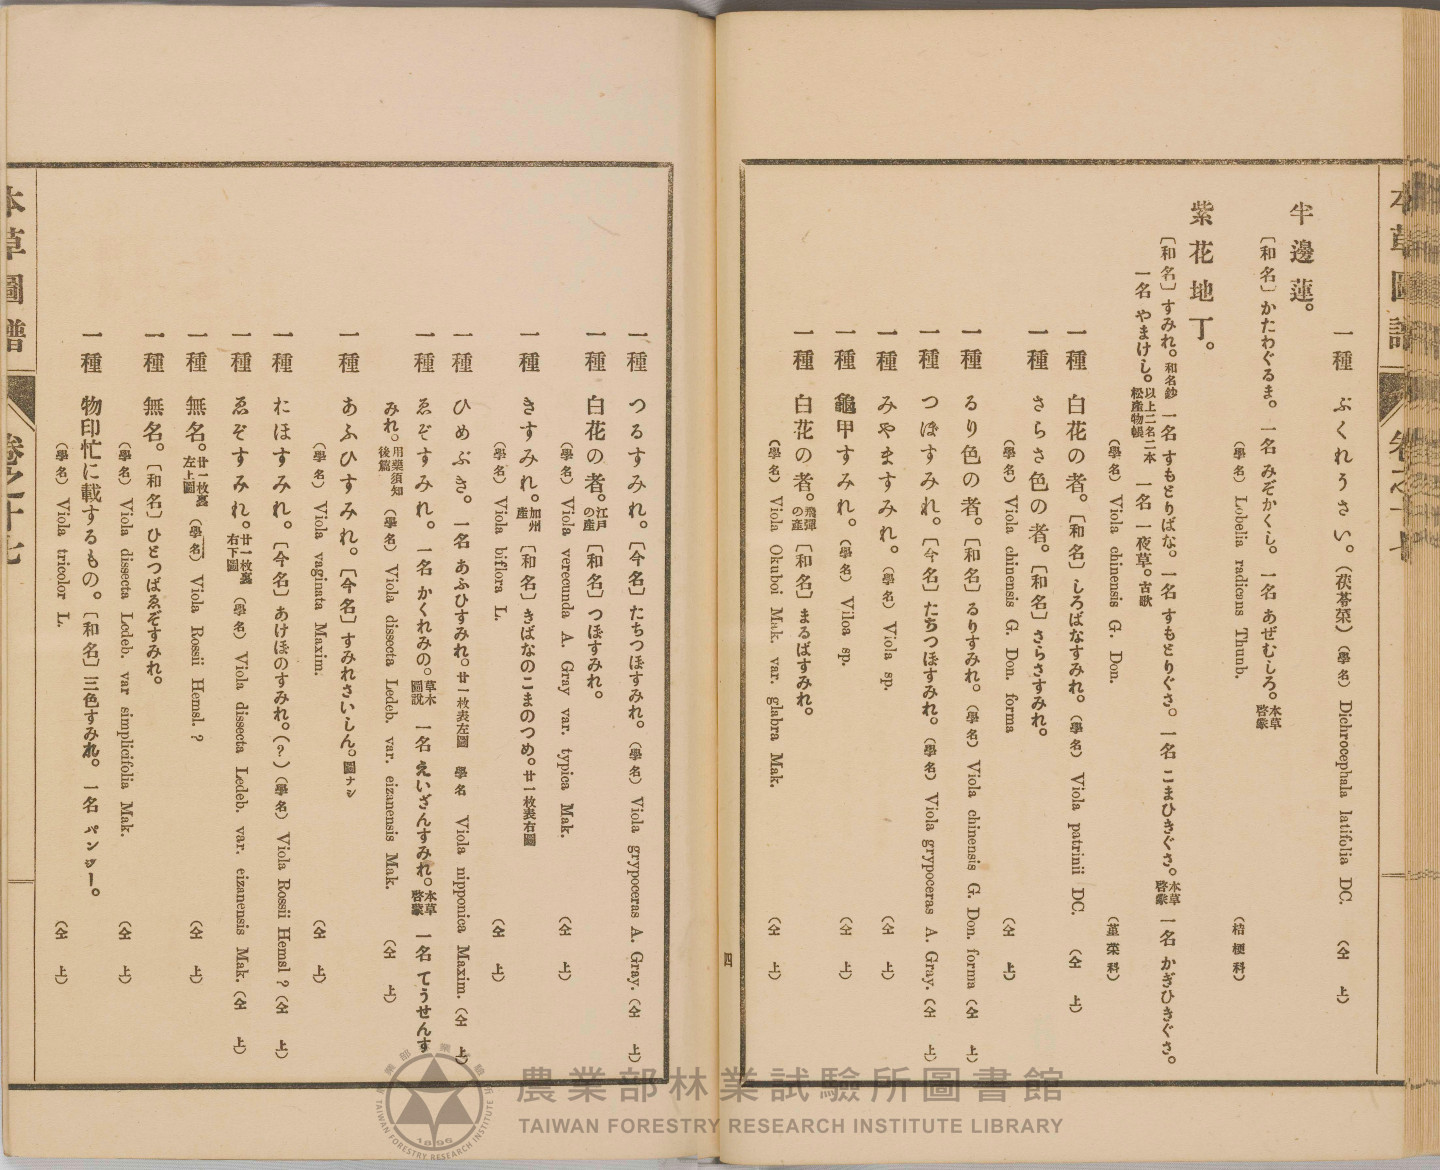 一種 ぶくれうさい。（茯苓菜）（學名） Dichrocephala latifolia DC. （仝上）
半邊蓮。
〔和名〕かたわぐるま。一名 みぞかくし。一名 あぜむしろ。本草啓蒙
（學名） Lobelia radicans Thunb. （桔梗科）
紫花地丁。
〔和名〕すみれ。和名鈔 一名 すもどりばな。一名 すもどりぐさ。一名 こまひきぐさ。本草啓蒙 一名 かぎひきぐさ。
一名 やまけし。以上二名二本松産物帳 一名 一夜草。古歌
（學名） Viola chinensis G. Don. （菫菜科）
一種 白花の者。〔和名〕しろばなすみれ。（學名） Viola patrinii DC. （仝上）
一種 さらさ色の者。〔和名〕さらさすみれ。
（學名） Viola chinensis G. Don. forma （仝上）
一種 るり色の者。〔和名〕るりすみれ。（學名） Viola chinensis G. Don. forma （仝上）
一種 つぼすみれ。〔今名〕たちつぼすみれ。（學名） Viola grypoceras A. Gray. （仝上）
一種 みやますみれ。（學名） Viola sp. （仝上）
一種 龜甲すみれ。（學名） Viloa sp. （仝上）
一種 白花の者。飛彈の産〔和名〕まるばすみれ。
（學名） Viola Okuboi Mak. var. glabra Mak. （仝上）
四
一種 つるすみれ。〔今名〕たちつぼすみれ。（學名） Viola grypoceras A. Gray. （仝上）
一種 白花の者。江戸の産〔和名〕つぼすみれ。
（學名） Viola verecunda A. Gray var. typica Mak. （仝上）
一種 きすみれ。加州産〔和名〕きばなのこまのつめ。廿一枚表右圖
（學名） Viola biflora L. （仝上）
一種 ひめぶき。一名 あふひすみれ。廿一枚表左圖 學名 Viola nipponica Maxim. （仝上）
一種 ゑぞすみれ。一名 かくれみの。草木圖説 一名 えいざんすみれ。本草啓蒙 一名 てうせんす
みれ。用藥須知後篇（學名） Viola dissecta Ledeb. var. eizanensis Mak. （仝上）
一種 あふひすみれ。〔今名〕すみれさいしん。圖ナシ
（學名） Viola vaginata Maxim. （仝上）
一種 たほすみれ。〔今名〕あけぼのすみれ。（？）（學名） Viola Rossii Hemsl ? （仝上）
一種 ゑぞすみれ。廿一枚裏右下圖（學名） Viola dissecta Ledeb. var. eizanensis Mak. （仝上）
一種 無名。廿一枚裏左上圖（學名） Viola Rossii Hemsl. ? （仝上）
一種 無名。〔和名〕ひとつばゑぞすみれ。
（學名） Viola dissecta Ledeb. var simplicifolia Mak. （仝上）
一種 物印忙に載するもの。〔和名〕三色すみれ。一名 パンジー。
（學名） Viola tricolor L. （仝上）
本草圖譜 卷之十七
農業部林業試驗所圖書館
TAIWAN FORESTRY RESEARCH INSTITUTE LIBRARY
1896